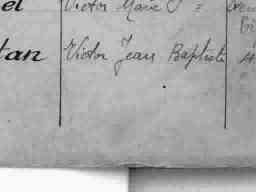 el Victor Marie J =
tan Victor Jean Baptiste